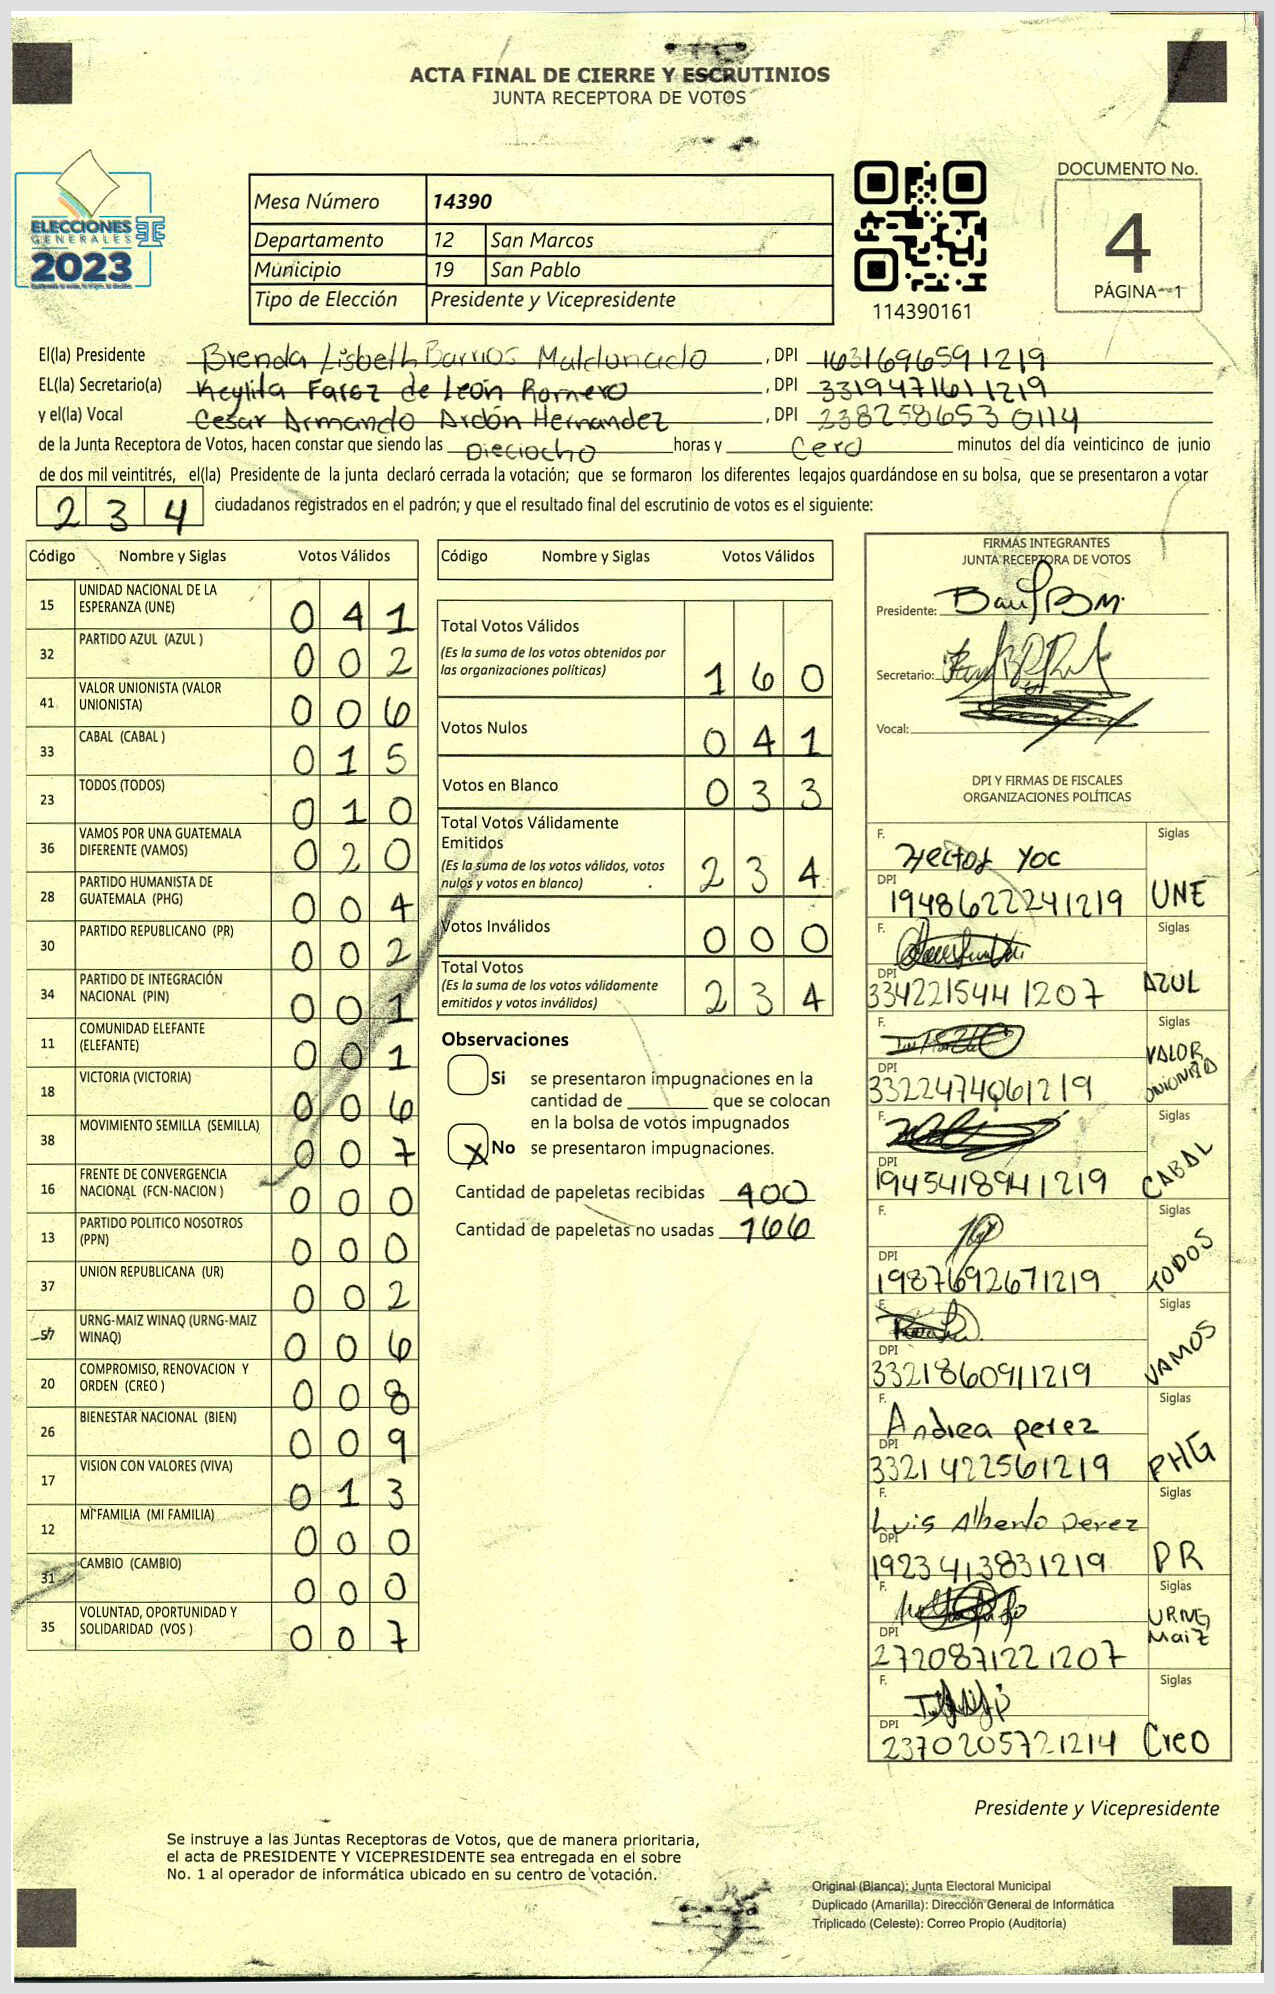 ACTA FINAL DE CIERRE Y ESCRUTINIOS
JUNTA RECEPTORA DE VOTOS
ELECCIONES
GENERALES
2023
Mesa Número 14390
Departamento 12 San Marcos
Municipio 19 San Pablo
Tipo de Elección Presidente y Vicepresidente
114390161
DOCUMENTO No.
4
PÁGINA 1
El(la) Presidente Brenda Lisbeth Barrios Maldonado, DPI 1631696591219
EL(la) Secretario(a) Keylita Faroz de León Romero, DPI 3319471611219
y el(la) Vocal Cesar Armando Ardón Hernandez, DPI 2382586530114
de la Junta Receptora de Votos, hacen constar que siendo las Dieciocho horas y Cero minutos del día veinticinco de junio
de dos mil veintitrés, el(la) Presidente de la junta declaró cerrada la votación; que se formaron los diferentes legajos guardándose en su bolsa, que se presentaron a votar
234 ciudadanos registrados en el padrón; y que el resultado final del escrutinio de votos es el siguiente:
Código Nombre y Siglas Votos Válidos
15 UNIDAD NACIONAL DE LA ESPERANZA (UNE) 041
32 PARTIDO AZUL (AZUL ) 002
41 VALOR UNIONISTA (VALOR UNIONISTA) 006
33 CABAL (CABAL ) 015
23 TODOS (TODOS) 010
36 VAMOS POR UNA GUATEMALA DIFERENTE (VAMOS) 020
28 PARTIDO HUMANISTA DE GUATEMALA (PHG) 004
30 PARTIDO REPUBLICANO (PR) 002
34 PARTIDO DE INTEGRACIÓN NACIONAL (PIN) 001
11 COMUNIDAD ELEFANTE (ELEFANTE) 001
18 VICTORIA (VICTORIA) 006
38 MOVIMIENTO SEMILLA (SEMILLA) 007
16 FRENTE DE CONVERGENCIA NACIONAL (FCN-NACION ) 000
13 PARTIDO POLITICO NOSOTROS (PPN) 000
37 UNION REPUBLICANA (UR) 002
57 URNG-MAIZ WINAQ (URNG-MAIZ WINAQ) 006
20 COMPROMISO, RENOVACION Y ORDEN (CREO ) 008
26 BIENESTAR NACIONAL (BIEN) 009
17 VISION CON VALORES (VIVA) 013
12 MI FAMILIA (MI FAMILIA) 000
31 CAMBIO (CAMBIO) 000
35 VOLUNTAD, OPORTUNIDAD Y SOLIDARIDAD (VOS ) 007
Código Nombre y Siglas Votos Válidos
Total Votos Válidos
(Es la suma de los votos obtenidos por
las organizaciones políticas) 160
Votos Nulos 041
Votos en Blanco 033
Total Votos Válidamente
Emitidos
(Es la suma de los votos válidos, votos
nulos y votos en blanco) 234
Votos Inválidos 000
Total Votos
(Es la suma de los votos válidamente
emitidos y votos inválidos) 234
Observaciones
Si se presentaron impugnaciones en la
cantidad de ________ que se colocan
en la bolsa de votos impugnados
X No se presentaron impugnaciones.
Cantidad de papeletas recibidas 400
Cantidad de papeletas no usadas 166
FIRMAS INTEGRANTES
JUNTA RECEPTORA DE VOTOS
Presidente:
Secretario:
Vocal:
DPI Y FIRMAS DE FISCALES
ORGANIZACIONES POLÍTICAS
F. Hector Yoc Siglas
DPI 1948622241219 UNE
F. Siglas
DPI 3342215441207 AZUL
F. Siglas
DPI 3322474061219 VALOR UNIONISTA
F. Siglas
DPI 1945418941219 CABAL
F. Siglas
DPI 1987692671219 TODOS
F. Siglas
DPI 3321860911219 VAMOS
F. Andrea perez Siglas
DPI 3321422561219 PHG
F. Luis Alberto Perez Siglas
DPI 1923413831219 PR
F. Siglas
DPI 2720871221207 URNG Maiz
F. Siglas
DPI 2370205721214 Creo
Presidente y Vicepresidente
Se instruye a las Juntas Receptoras de Votos, que de manera prioritaria,
el acta de PRESIDENTE Y VICEPRESIDENTE sea entregada en el sobre
No. 1 al operador de informática ubicado en su centro de votación.
Original (Blanca): Junta Electoral Municipal
Duplicado (Amarilla): Dirección General de Informática
Triplicado (Celeste): Correo Propio (Auditoria)